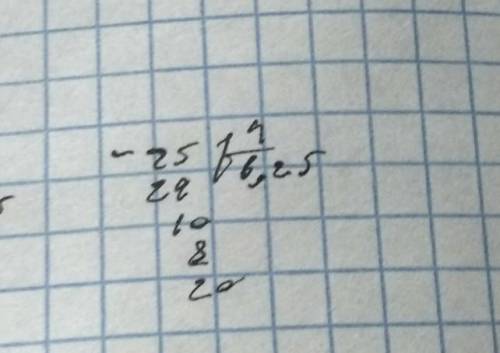 4
- 25 6,25
24
10
8
20
5